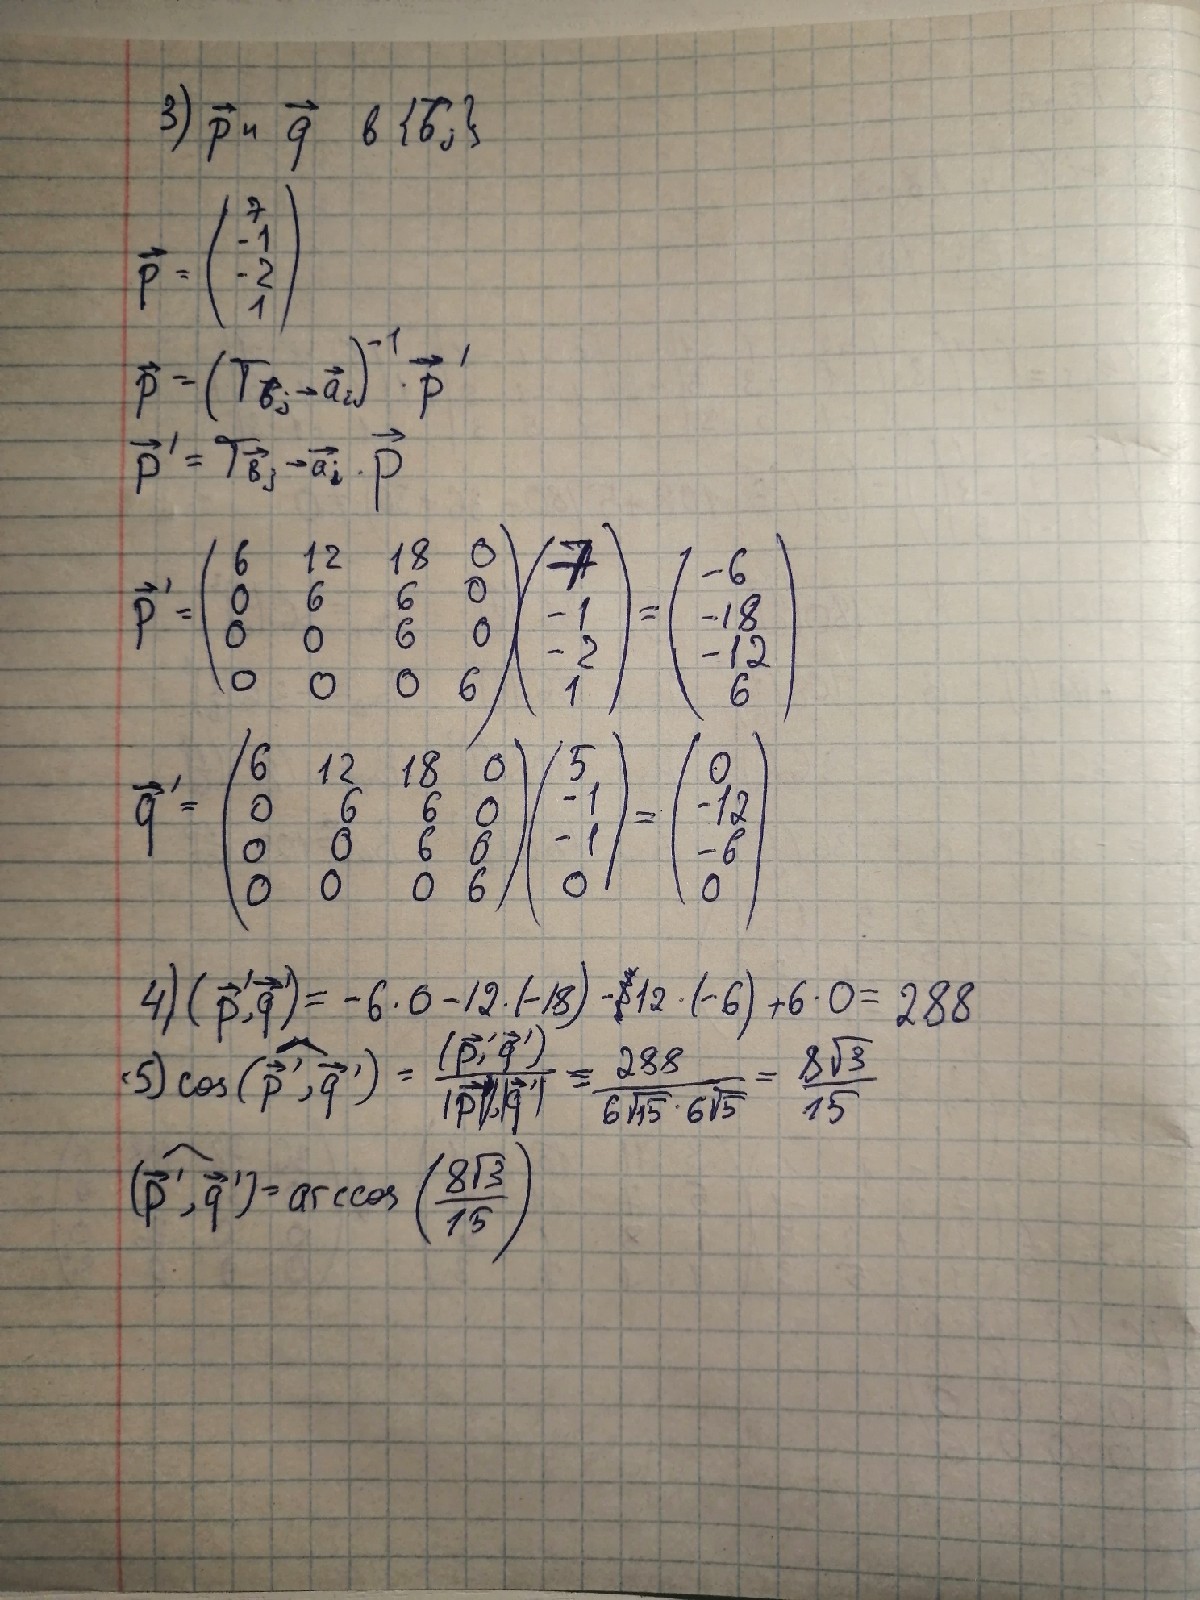 3) p⃗ и q⃗ в {b⃗ⱼ}
p⃗ = (7 -1 -2 1)
p⃗ = (T b⃗ⱼ→a⃗ᵢ)⁻¹ · p⃗'
p⃗' = T b⃗ⱼ→a⃗ᵢ · p⃗
p⃗' = (6 12 18 0
0 6 6 0
0 0 6 0
0 0 0 6) (7 -1 -2 1) = (-6 -18 -12 6)
q⃗' = (6 12 18 0
0 6 6 0
0 0 6 0
0 0 0 6) (5 -1 -1 0) = (0 -12 -6 0)
4) (p⃗', q⃗') = -6·0 -12·(-18) -12·(-6) +6·0 = 288
5) cos(p⃗', q⃗') = (p⃗', q⃗') / |p⃗'|·|q⃗'| = 288 / 6√15·6√5 = 8√3 / 15
(p⃗', q⃗') = arccos (8√3 / 15)